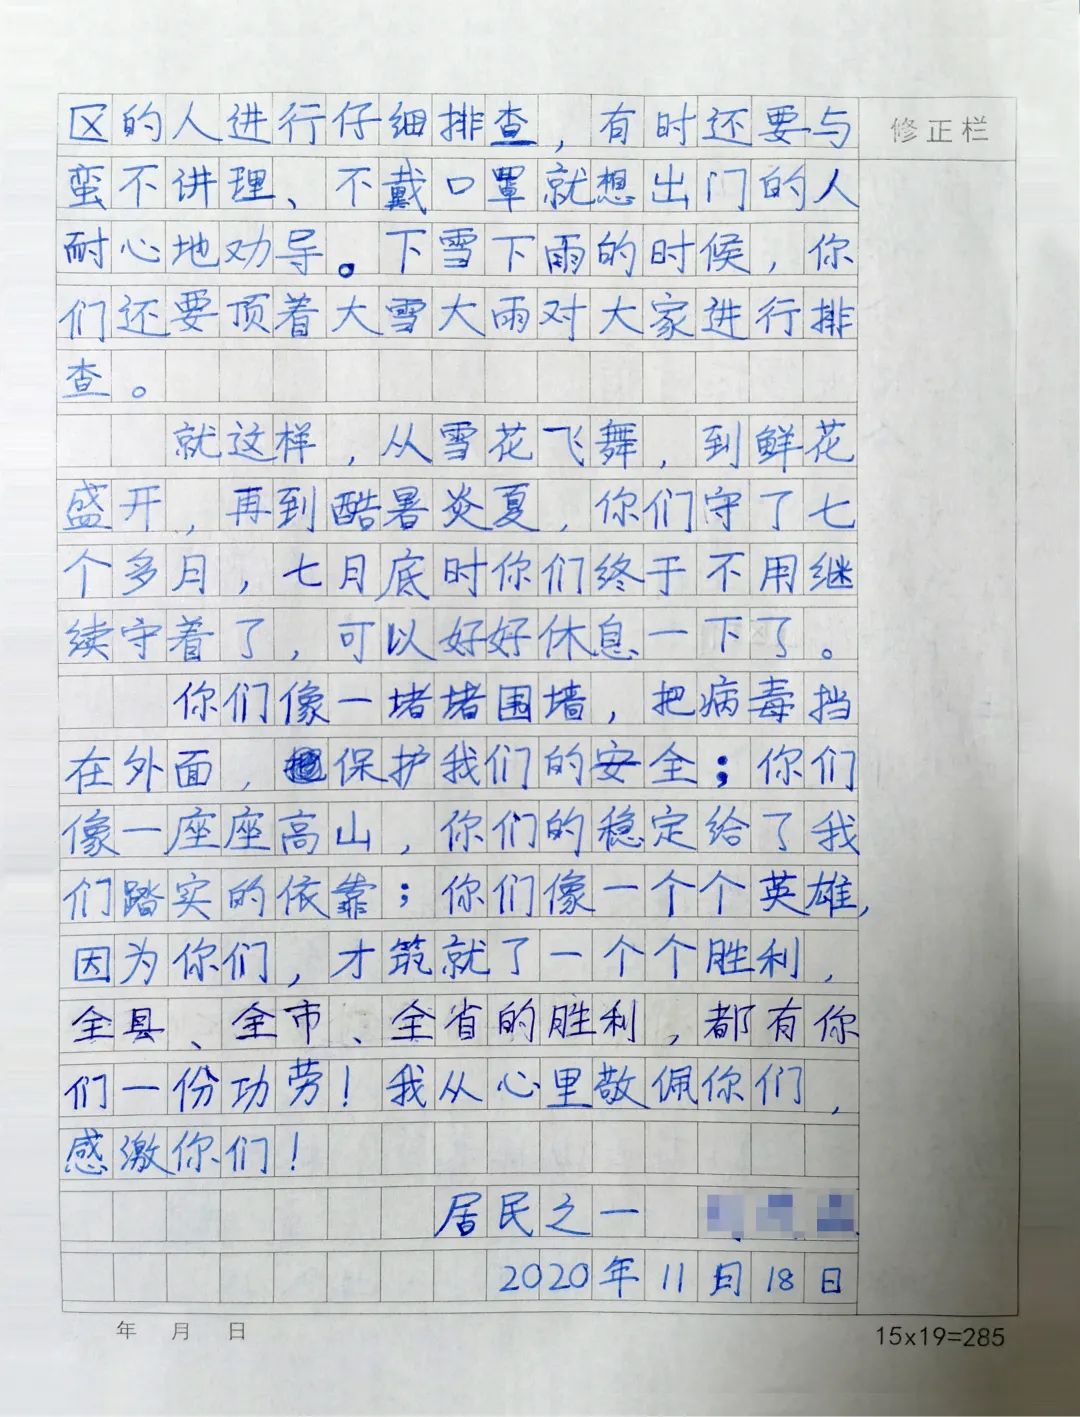 区的人进行仔细排查，有时还要与
修正栏
蛮不讲理、不戴口罩就想出门的人
耐心地劝导。下雪下雨的时候，你
们还要顶着大雪大雨对大家进行排
查。
就这样，从雪花飞舞，到鲜花
盛开，再到酷暑炎夏，你们守了七
个多月，七月底时你们终于不用继
续守着了，可以好好休息一下了。
你们像一堵堵围墙，把病毒挡
在外面，保护我们的安全；你们
像一座座高山，你们的稳定给了我
们踏实的依靠；你们像一个个英雄，
因为你们，才筑就了一个个胜利，
全县、全市、全省的胜利，都有你
们一份功劳！我从心里敬佩你们，
感激你们！
居民之一
2020年11月18日
年 月 日
15x19=285